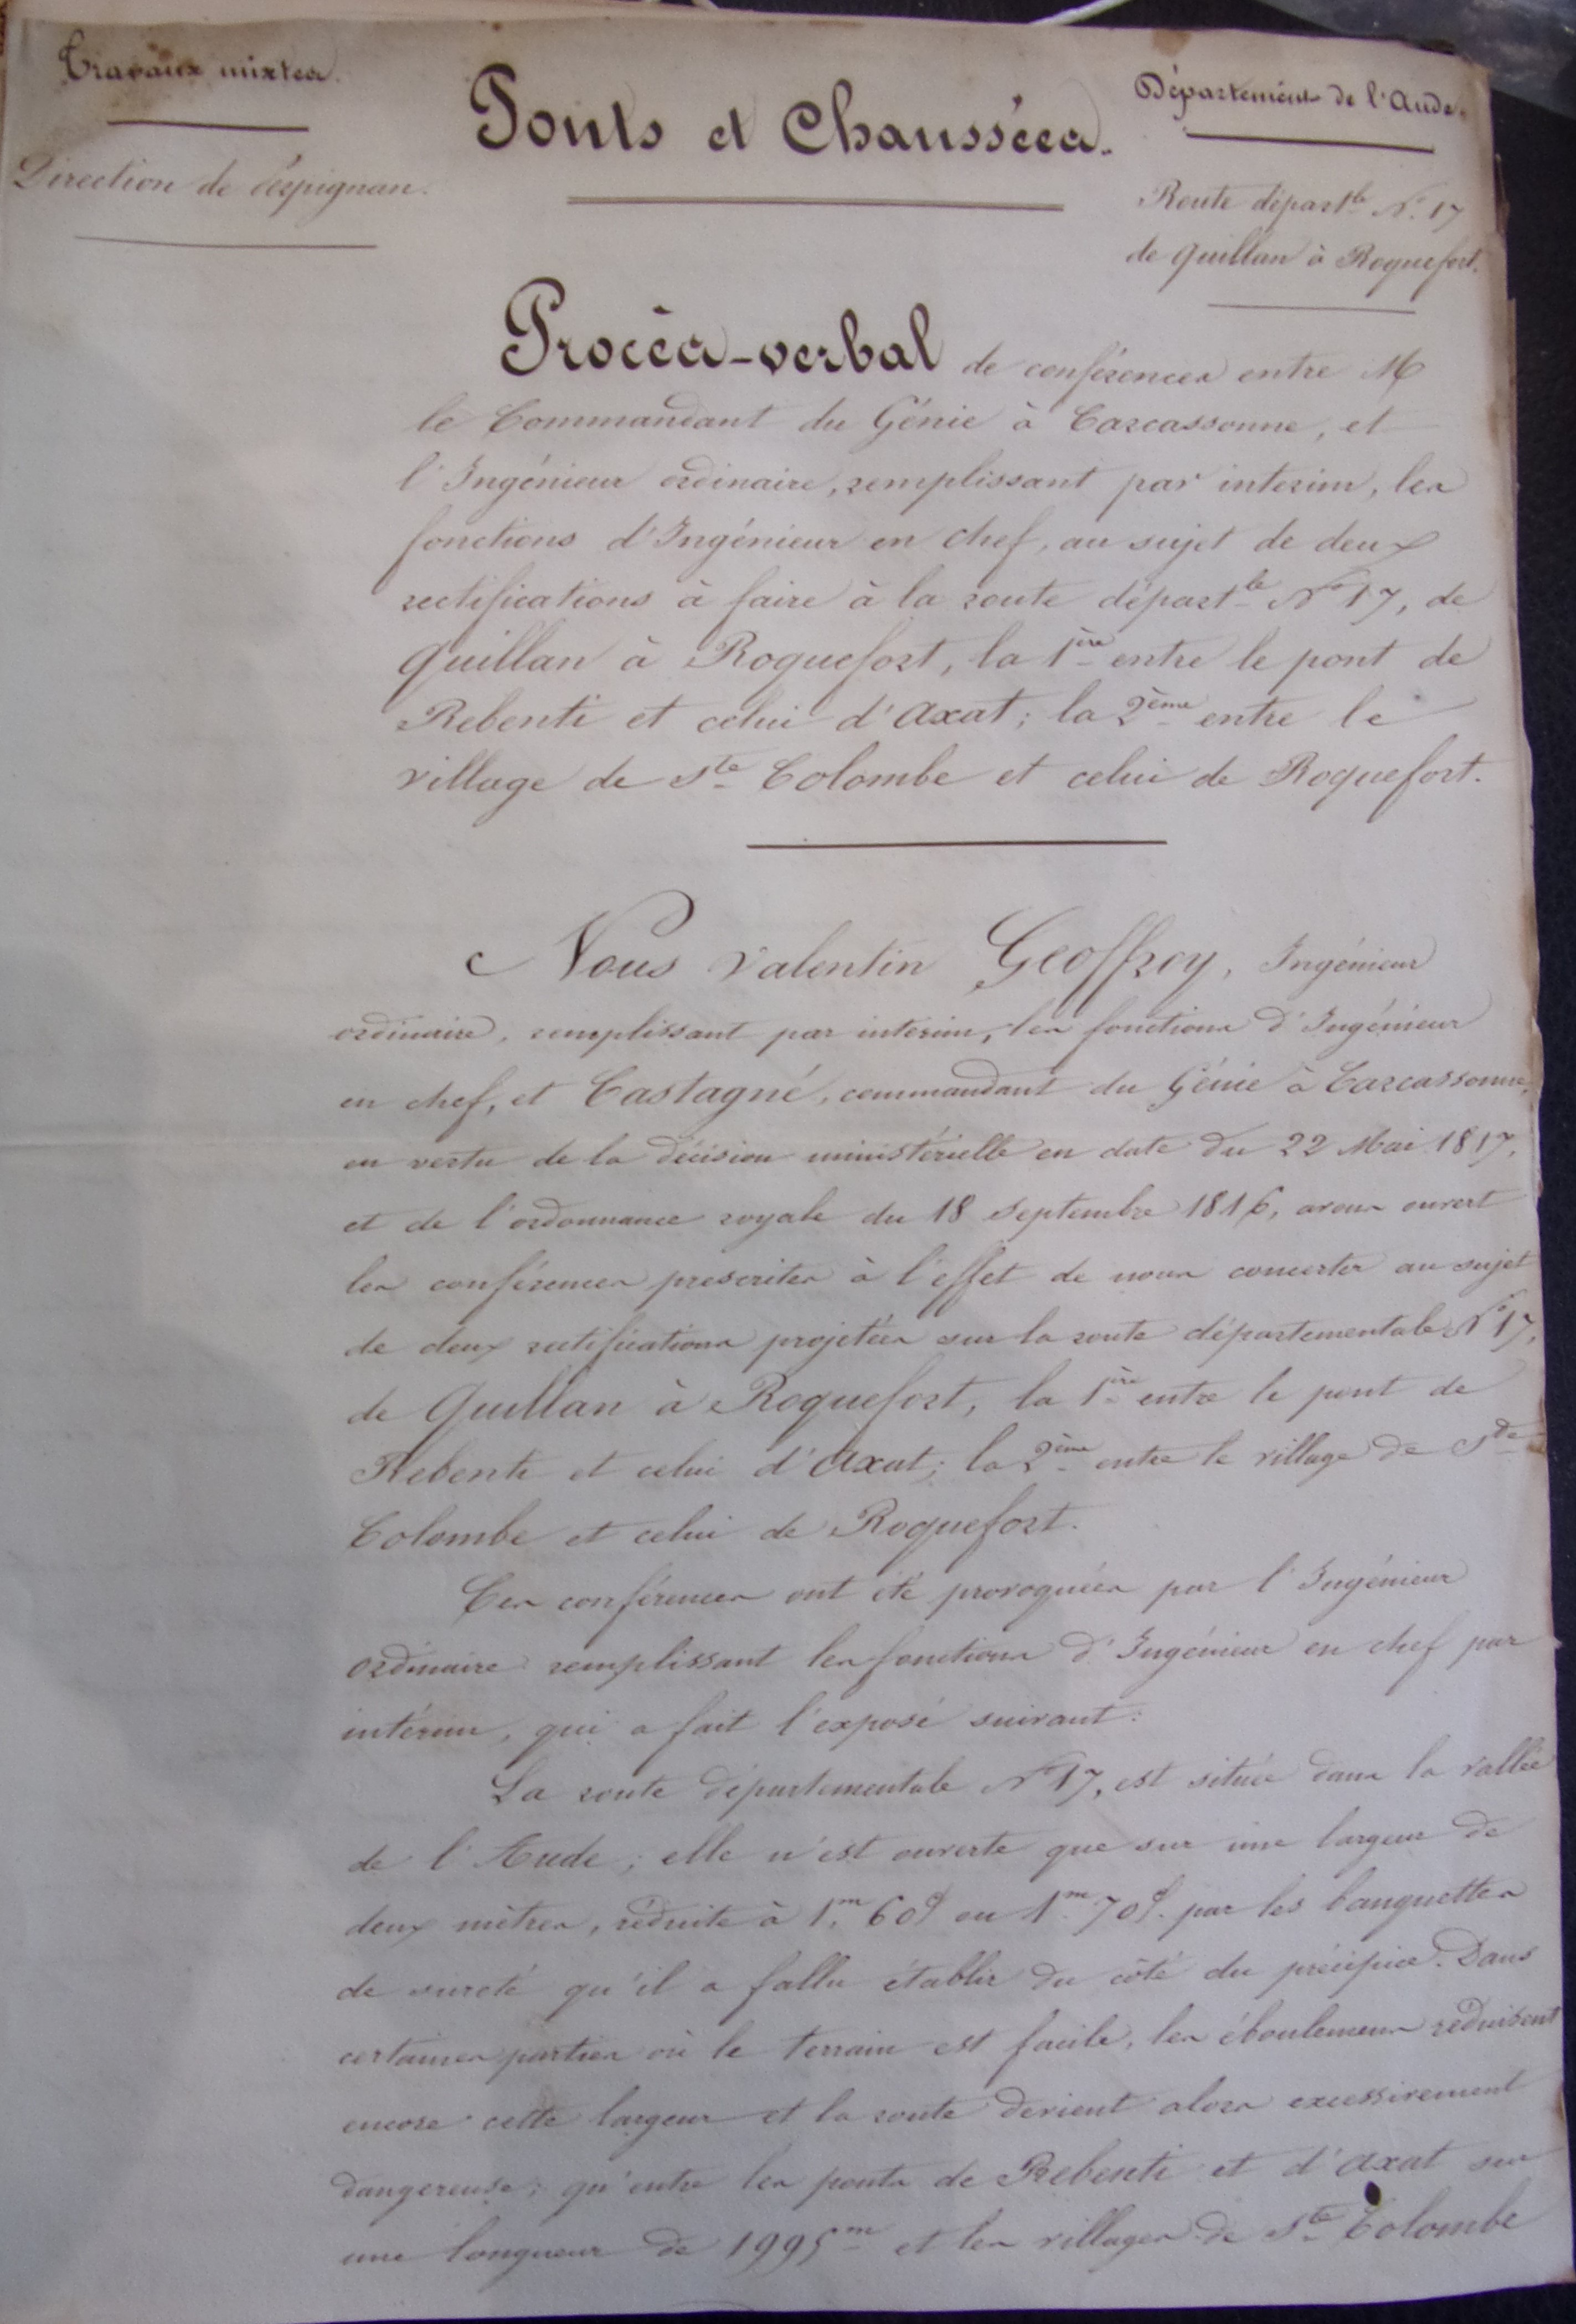 Travaux mixtes.
Direction de Perpignan.
Ponts et Chaussées.
Département de l'Aude.
Route départ.le N.o 17
de Quillan à Roquefort.
Procès-verbal de conférences entre M
le Commandant du Génie à Carcassonne, et
l'Ingénieur ordinaire, remplissant par interim, les
fonctions d'Ingénieur en chef, au sujet de deux
rectifications à faire à la route départ.le No 17, de
Quillan à Roquefort, la 1ère entre le pont de
Rebenti et celui d'Axat; la 2ème entre le
village de Ste Colombe et celui de Roquefort.
Nous Valentin Geoffroy, Ingénieur
ordinaire, remplissant par intérim, les fonctions d'Ingénieur
en chef, et Castagné, commandant du Génie à Carcassonne,
en vertu de la décision ministérielle en date du 22 Mai 1817,
et de l'ordonnance royale du 18 Septembre 1816, avons ouvert
les conférences prescrites à l'effet de nous concerter au sujet
de deux rectifications projetées sur la route départementale No 17,
de Quillan à Roquefort, la 1ère entre le pont de
Rebenti et celui d'Axat; la 2ème entre le village de Ste
Colombe et celui de Roquefort.
Ces conférences ont été provoquées par l'Ingénieur
ordinaire remplissant les fonctions d'Ingénieur en chef par
intérim, qui a fait l'exposé suivant:
La route départementale No 17, est située dans la vallée
de l'Aude; elle n'est ouverte que sur une largeur de
deux mètres, réduite à 1m,60c ou 1m.70c. par les banquettes
de sureté qu'il a fallu établir du côté du précipice. Dans
certaines parties où le terrain est facile, les éboulemens réduisent
encore cette largeur et la route devient alors excessivement
dangereuse; qu'entre les ponts de Rebenti et d'Axat sur
une longueur de 1995m et les villages de Ste Colombe